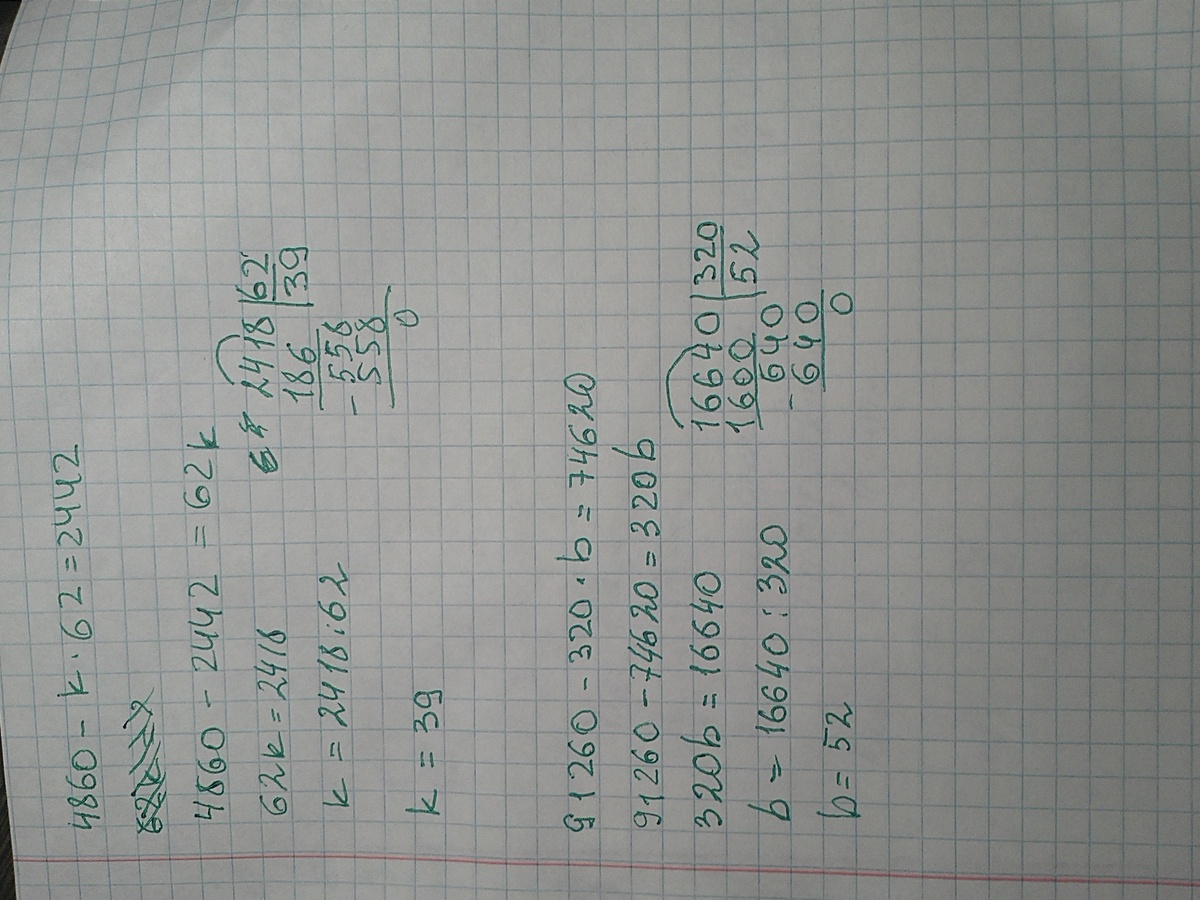 4860 - k · 62 = 2442
4860 - 2442 = 62k
62k = 2418
2418 | 62
186 | 39
- 558
558
0
k = 2418 : 62
k = 39
91260 - 320 · b = 74620
91260 - 74620 = 320b
320b = 16640
16640 | 320
1600 | 52
- 640
640
0
b = 16640 : 320
b = 52